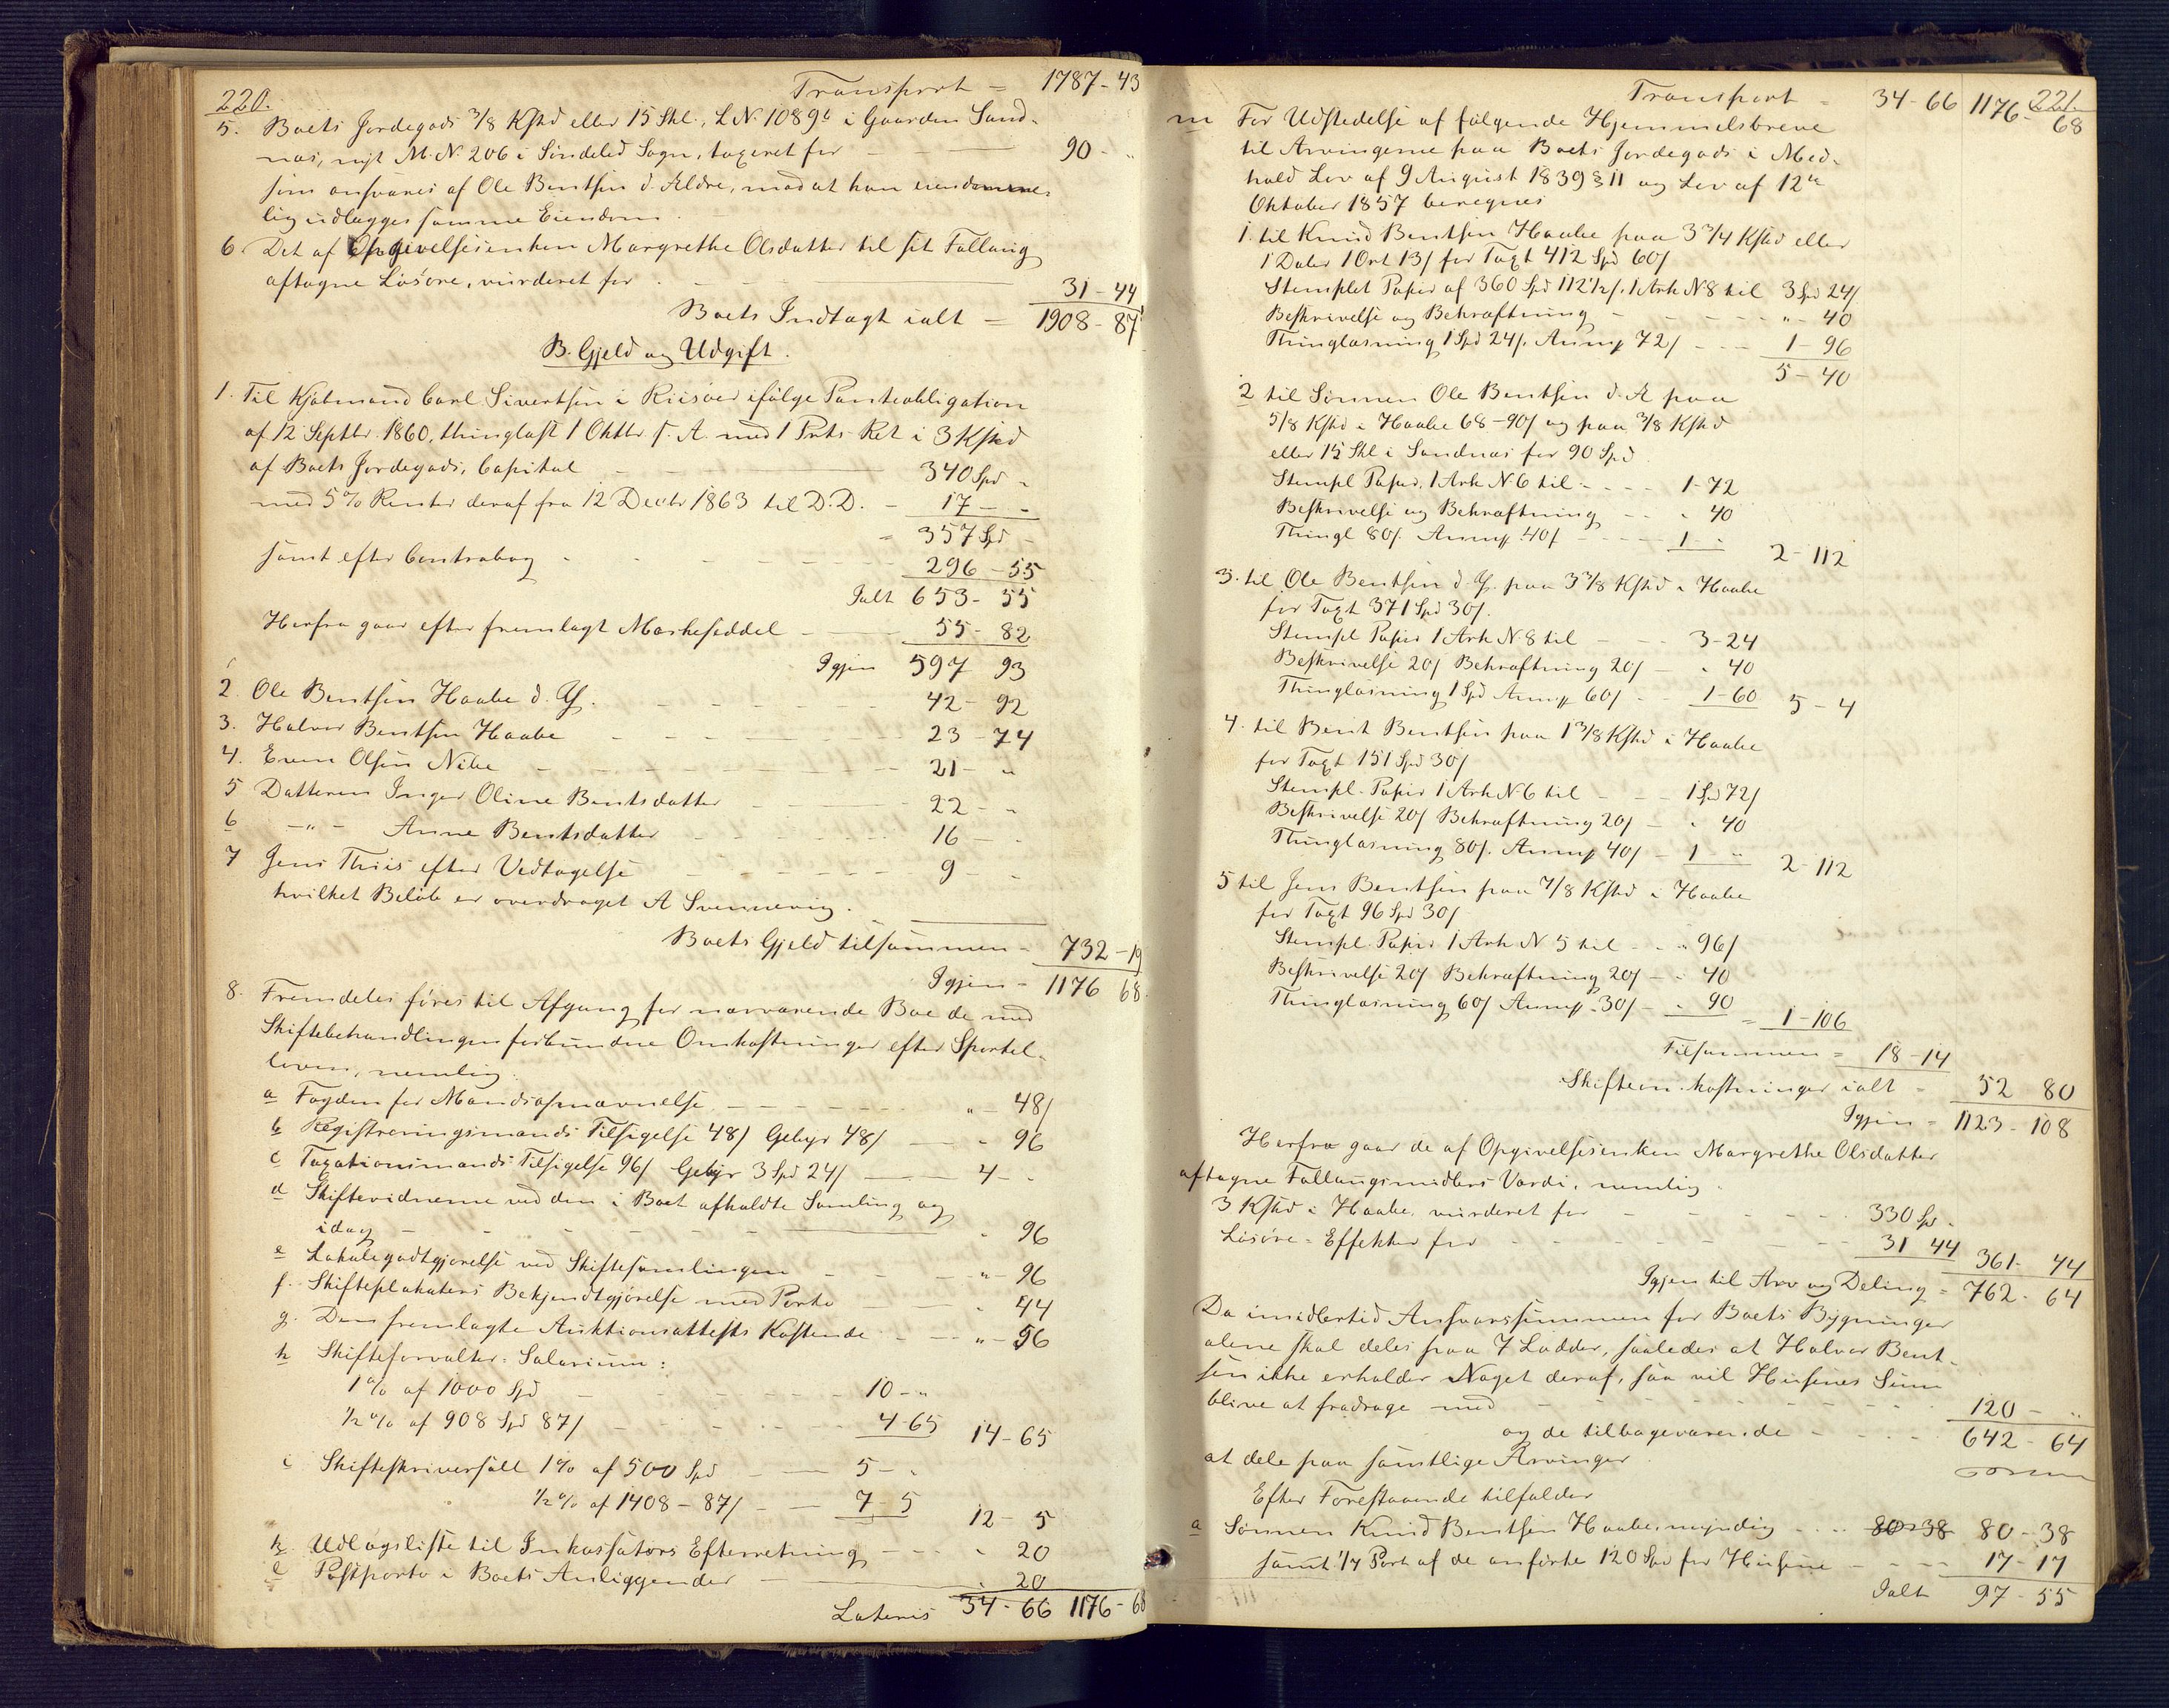 220.
Transport = 1787-43
5. Boets Jordegods 3/8 Kfhd eller 15 Skl., L.N. 1089b i Gaarden Sand-
næs, nyt M.N. 206 i Søndeled Sogn, taxeret for 90 - "
som ansvares af Ole Bentsen d. Ældre, mod at ham eiendomme-
lig udlægges samme Eiendom.
6. Det af Opgivelsesenken Margrethe Olsdatter til sit Fallaug
aftagne Løsøre, vurderet for 31-44
Boets Indtægt ialt = 1908-87
B. Gjeld og Udgift.
1. Til Kjøbmand Carl Sivertsen i Riisøer ifølge Panteobligation
af 12 Septbr. 1860, thinglæst 1 Oktbr. s. A. med 1 Prts. Ret i 3 Kfhd
af Boets Jordegods, Capital 340 Spd "
med 5% Renter deraf fra 12 Decbr 1863 til D.D. - 17 - -
= 357 Spd -
samt efter Contrabog 296-55
Ialt 653-55
Herfra gaar efter fremlagt Mærkeseddel 55-82
Igjen 597 93
2. Ole Bentsen Haabe d. Y. 42-92
3. Halvor Bentsen Haabe 23-74
4. Even Olsen Nibe 21 - "
5 Datteren Inger Oline Bentsdatter 22 - "
6 -"- Anne Bentsdatter 16 -
7 Jens Thiis efter Vedtagelse 9 -
hvilket Beløb er overdraget A Svennevig.
Boets Gjeld tilsammen - 732-19
Igjen - 1176 68.
8. Fremdeles føres til Afgang for nærværende Boe de med
Skiftebehandlingen forbundne Omkostninger efter Sportel-
loven, nemlig:
a Fogden for Mandsopnævnelse " - 48/
b Registreringsmænds Tilsigelse 48/ Gebyr 48/ " 96
c Taxationsmænds Tilsigelse 96/ Gebyr 3 Spd 24/ 4 - -
d Skiftevidnerne ved den i Boet afholdte Samling og
idag " 96
e Lokalegodtgjørelse ved Skiftesamlingen " - 96
f. Skifteplakatens Bekjendtgjørelse med Porto " 44
g. Den fremlagte Auktionsattests Kostende " - 56
h Skifteforvalter-Salarium:
1% af 1000 Spd 10 - "
1/2 % af 908 Spd 87/ 4-65 14-65
i Skifteskriversalt 1% af 500 Spd 5 - "
1/2% af 1408-87/ 7-5 12-5
k Udlægsliste til Inkassators Efterretning " 20
l Postporto i Boets Anliggender " 20
Lateris 34-66 1176-68
221.
Transport - 34-66 1176-68
m For Udstedelse af følgende Hjemmelsbreve
til Arvingerne paa Boets Jordegods i Med-
hold Lov af 9 August 1839 § 11 og Lov af 12te
Oktober 1857 beregnes
1. til Knud Bentsen Haabe paa 3 3/4 Kfhd eller
1 Daler 1 Ort 13/ for Taxt 412 Spd 60/
Stemplet Papir af 360 Spd 112 1/2/. 1 Ark N 8 til 3 Spd 24/
Beskrivelse og Bekræftning " - 40
Thinglæsning 1 Spd 24/. Anmp 72/ 1-96
5-40
2 til Sønnen Ole Bentsen d. Æ paa
5/8 Kfhd i Haabe 68-90/ og paa 3/8 Kfhd
eller 15 Skl i Sandnæs for 90 Spd
Stempl Papir, 1 Ark N 6 til 1-72
Beskrivelse og Bekræftning " 40
Thingl 80/. Anmp. 40/ 1 - " 2-112
3. til Ole Bentsen d. Y. paa 3 3/8 Kfhd i Haabe
for Taxt 371 Spd 30/.
Stempl Papir 1 Ark N 8 til 3-24
Beskrivelse 20/ Bekræftning 20/ " 40
Thinglæsning 1 Spd Anmp 60/ 1-60 5-4
4. til Bent Bentsen paa 1 3/8 Kfhd i Haabe
for Taxt 151 Spd 30/
Stempl. Papir 1 Ark N 6 til 1 Spd 72/
Beskrivelse 20/ Bekræftning 20/ " 40
Thinglæsning 80/. Anmp 40/ - 1 - " 2-112
5 til Jens Bentsen paa 7/8 Kfhd i Haabe
for Taxt 96 Spd 30/
Stempl. Papir 1 Ark N 5 til " 96/
Beskrivelse 20/ Bekræftning 20/ " 40
Thinglæsning 60/ Anmp. 30/ " 90 = 1-106
Tilsammen = 18-14
Skifteomkostninger ialt - 52 80
Igjen = 1123-108
Herfra gaar de af Opgivelsesenken Margrethe Olsdatter
aftagne Fallaugsmidlers Værdi, nemlig:
3 Kfhd i Haabe, vurderet for 330 Spd -
Løsøre-Effekter for 31 44 361-44
Igjen til Arv og Deling = 762-64
Da imidlertid Ansvarssummen for Boets Bygninger
alene skal deles paa 7 Lodder, saaledes at Halvor Bent-
sen ikke erholder Noget deraf, saa vil Husenes Sum
blive at fradrage med 120 - "
og de tilbageværende 642-64
at dele paa samtlige Arvinger.
Efter Forestaaende tilfalder
a Sønnen Knud Bentsen Haabe, myndig 80-38 80-38
samt 1/7 Part af de anførte 120 Spd for Husene 17-17
Ialt 97-55